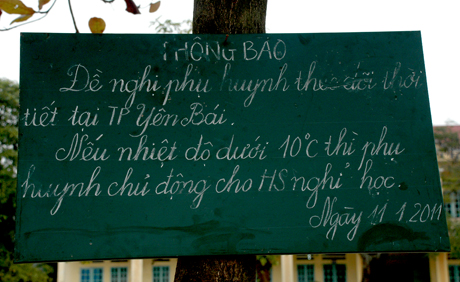 THÔNG BÁO
Đề nghị phụ huynh theo dõi thời
tiết tại TP Yên Bái.
Nếu nhiệt độ dưới 10°C thì phụ
huynh chủ động cho HS nghỉ học.
Ngày 11 1 2011